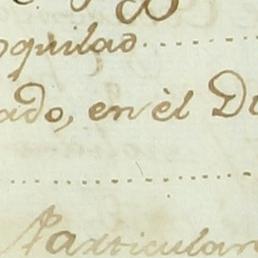 oquilao
ado, en èl D
Particular